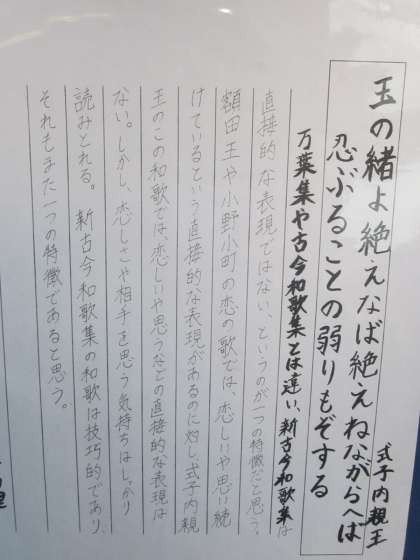 玉の緒よ絶えなば絶えねながらへば
忍ぶることの弱りもぞする
式子内親王
万葉集や古今和歌集とは違い、新古今和歌集は
直接的な表現ではない、というのが一つの特徴だと思う。
額田王や小野小町の恋の歌では、恋しいや思い続
けているという直接的な表現があるのに対し式子内親
王のこの和歌では恋しいや思うなどの直接的な表現は
ない。しかし、恋しさや相手を思う気持ちはしっかり
読みとれる。新古今和歌集の和歌は技巧的であり、
それもまた一つの特徴であると思う。